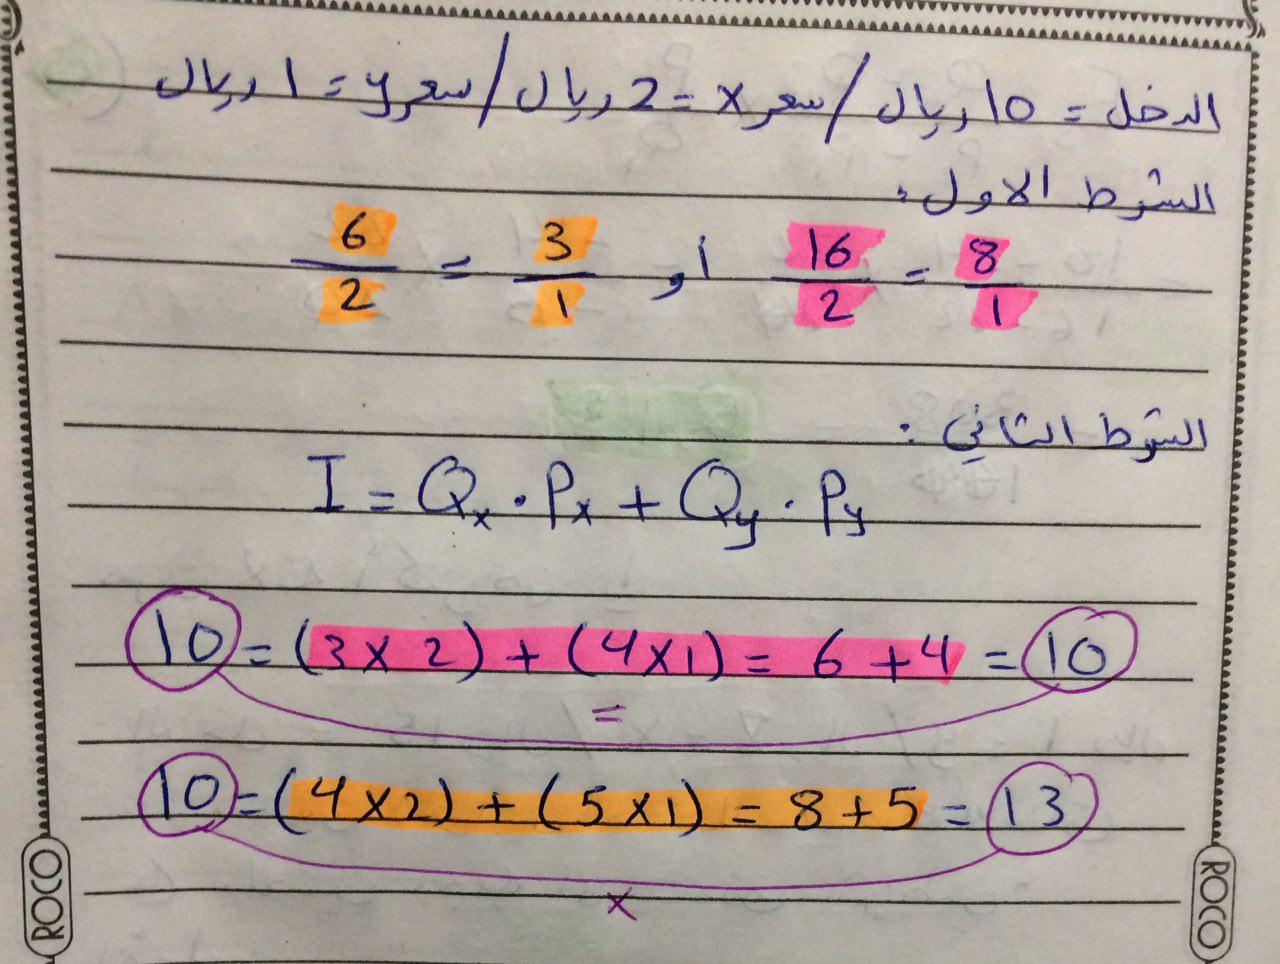 الدخل = 10 ريال / سعر x = 2 ريال / سعر y = 1 ريال
الشرط الاول :
6/2 = 3/1 أو 16/2 = 8/1
الشرط الثاني :
I = Qx . Px + Qy . Py
10 = (3 x 2) + (4 x 1) = 6 + 4 = 10
=
10 = (4 x 2) + (5 x 1) = 8 + 5 = 13
x
ROCO
ROCO